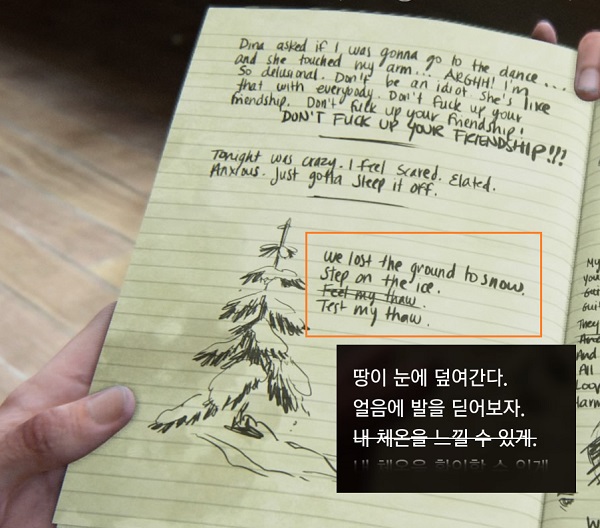 Dina asked if I was gonna go to the dance ...
and she touched my arm... ARGHH! I'm
So delusional. Don't be an idiot. She's like
that with everybody. Don't fuck up your
friendship. Don't fuck up your friendship!
DON'T FUCK UP YOUR FRIENDSHIP!!!
Tonight was crazy. I feel scared. Elated.
Anxious. Just gotta sleep it off.
We lost the ground to snow.
Step on the ice.
Feel my thaw.
Test my thaw.
땅이 눈에 덮여간다.
얼음에 발을 딛어보자.
내 체온을 느낄 수 있게.
My
They
And
And
All